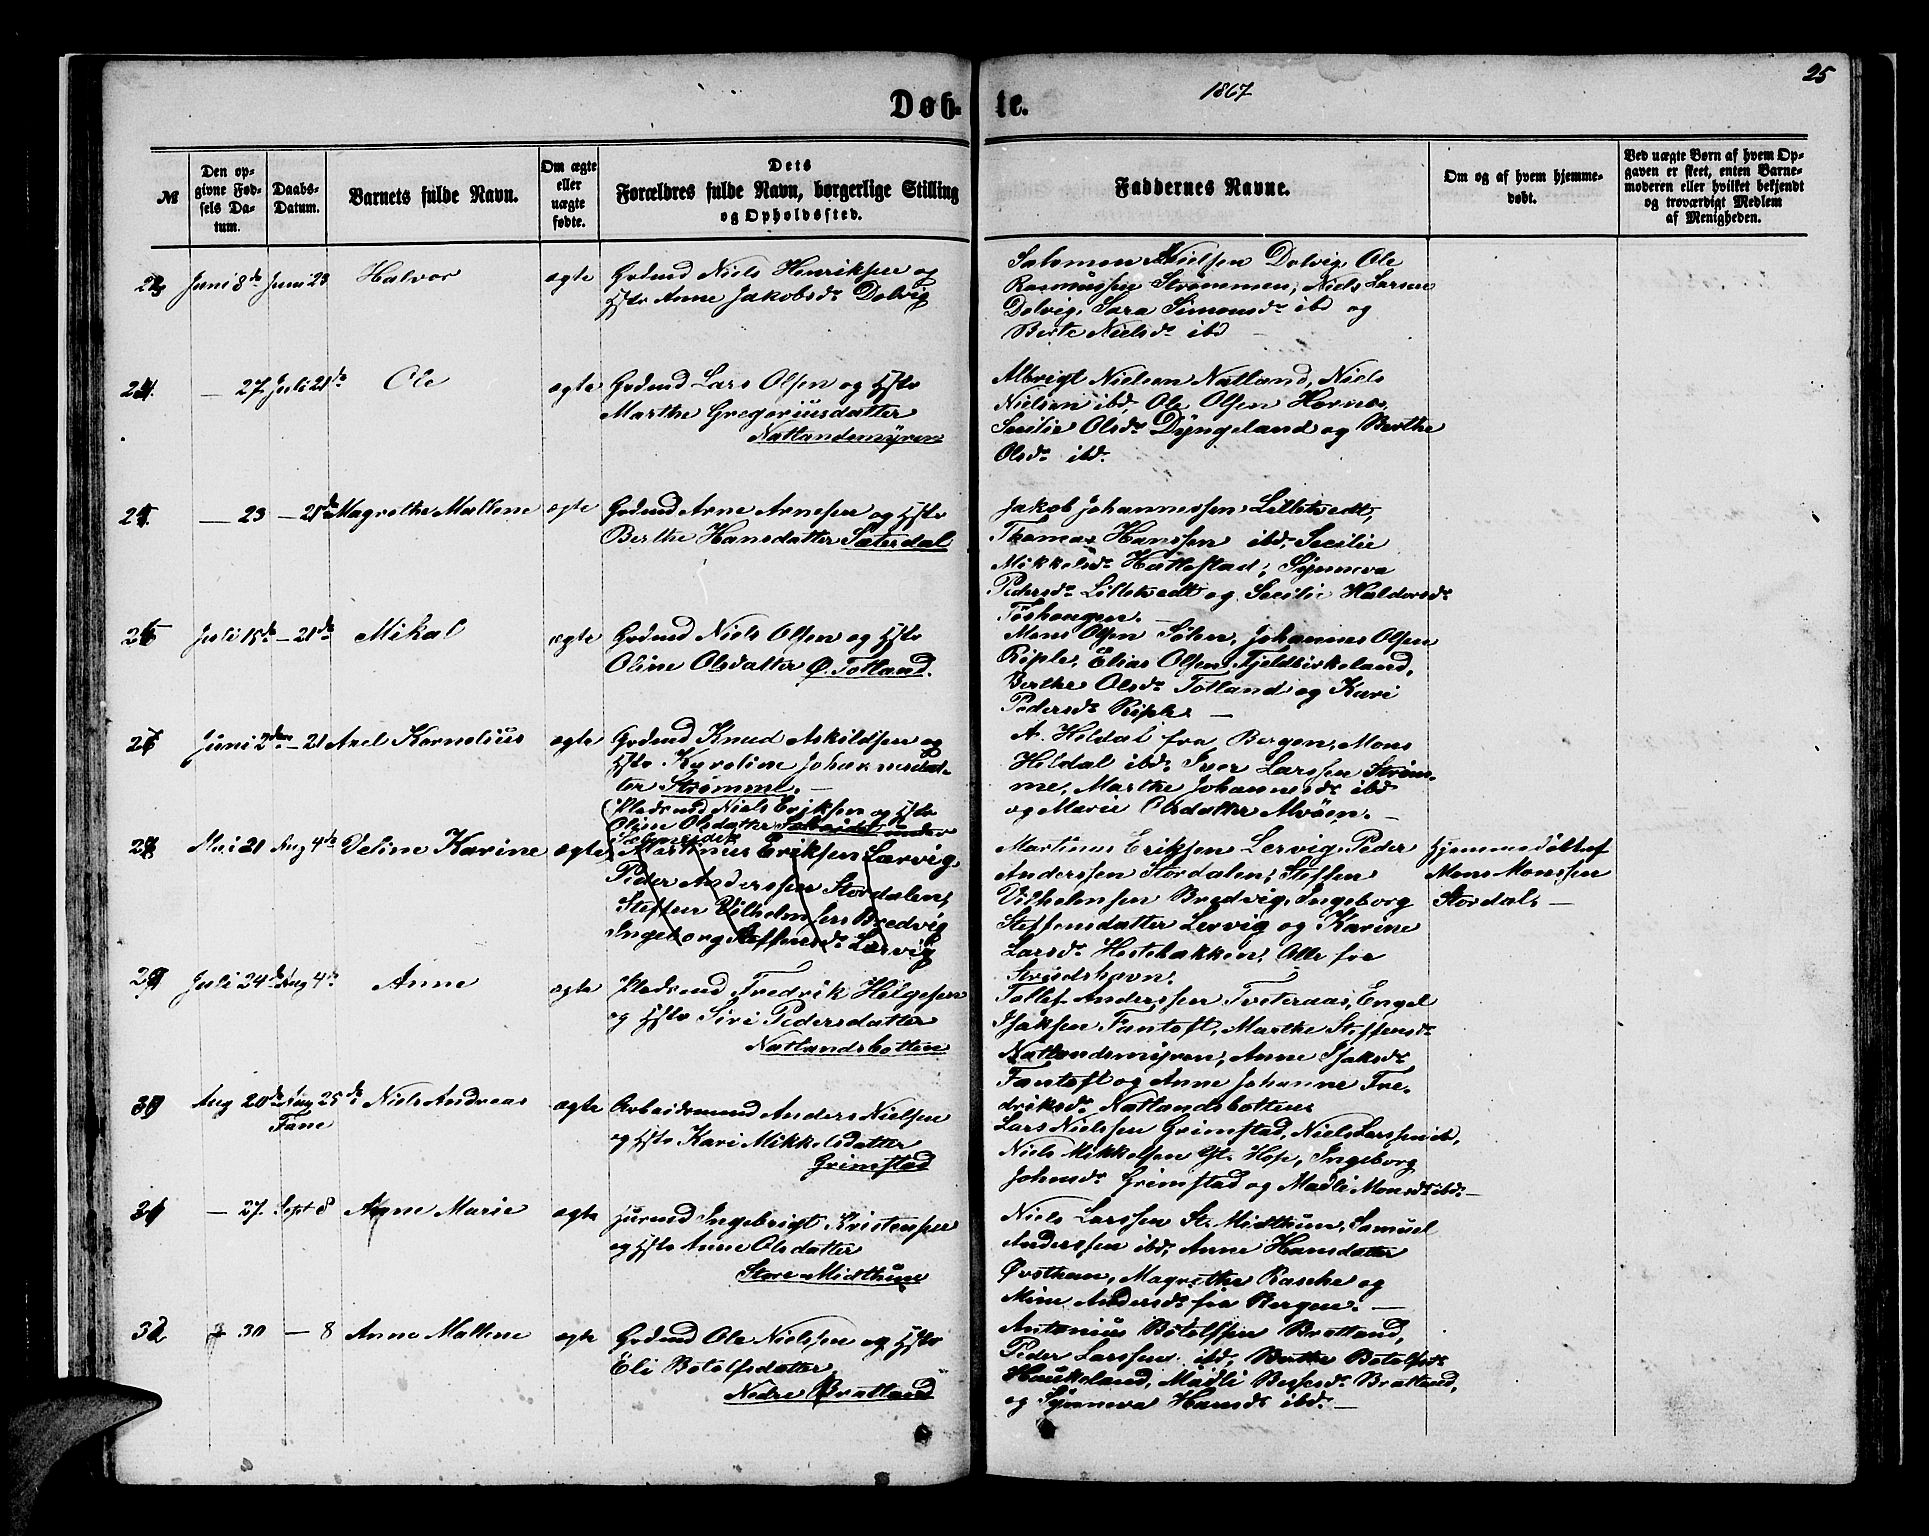 Døb-
te.
1867
25
№
Den op-
givne Fød-
sels Da-
tum.
Daabs-
Datum.
Barnets fulde Navn.
Om ægte
eller
uægte
fødte.
Dets
Forældres fulde Navn, borgerlige Stilling
og Opholdssted.
Faddernes Navne.
Om og af hvem hjemme-
døbt.
Ved uægte Børn af hvem Op-
gaven er skeet, enten Barne-
moderen eller hvilket bekjendt
og troværdigt Medlem
af Menigheden.
23 Juni 8de Juni 23 Halvor ægte Grdmd Niels Henriksen og
Hstr Anne Jakobsdr Dolvig
Salomon Nielsen Dolvig, Ole
Rasmussen Strømmen, Niels Larsen
Dolvig, Sara Simonsdr ibd og
Berte Nielsdr ibd
24. — 27 Juli 21de Ole ægte Grdmd Lars Olsen og Hstr
Marthe Gregoriusdatter
Natlandsmyren
Albrigt Nielsen Natland, Niels
Nielsen ibd, Ole Olsen Hornes,
Secilie Olsdr Dyngeland og Berthe
Olsdr ibd.
25. — 23 — 21de Magrethe Maltene ægte Grdmd Arne Arnesen og Hstr
Berthe Hansdatter Sæterdal
Jakob Johannessen Lilletvedt,
Thomas Hanssen ibd, Secilie
Mikkelsdr Hatlestad, Synneva
Pedersdr Lilletvedt og Secilie Haldorsdr
Tøshaugen.
26 Juli 15de — 21de Mikal ægte Grdmd Niels Olsen og Hstr
Oline Olsdatter Ø. Totland.
Mons Olsen Søhen, Johannes Olsen
Riple, Elias Olsen Fjeldbirkeland,
Berthe Olsdr Totland og Kari
Pedersdr Riple. —
27 Juni 2den — 21 Axel Kornelius ægte Grdmd Knud Askildsen og
Hstr Karoline Johannesdat-
ter Strømme. —
A. Hildal fra Bergen, Mons
Hildal ibd, Iver Larssen Strøm-
me, Marthe Johannesdr ibd
og Marie Olsdatter Mvöen. —
28 Mai 21 Aug 4de Veline Karine ægte
Pladsmd Niels Eriksen og Hstr
Oline Olsdatter
Martinus Eriksen Lærvig,
Peder Anderssen Stordalen,
Steffen Vilhelmsen Bredvig
Ingeborg Steffensdr Lærvig
Martinus Eriksen Lervig, Peder
Anderssen Stordalen, Steffen
Vilhelmsen Bredvig, Ingeborg
Steffensdatter Lervig og Karine
Larsdr Hestebakken, Alle fra
Strudshavn.
Hjemmedöbt af
Mons Monssen
Stordal, —
29 Juli 24de Aug 4de Anne ægte Pladsmd Fredrik Helgesen
og Hstr Siri Pedersdatter
Natlandsbotten
Tollef Anderssen Tveteraas, Engel
Isaksen Fantoft, Marthe Steffensdr
Natlandsmyren, Anne Isaksdr
Fantoft og Anne Johanne Fre-
driksdr Natlandsbotten
30 Aug 20de Aug 25de Niels Andreas ægte Arbeidsmand Anders Nielsen
Fane
og Hstr Kari Mikkelsdatter
Grimstad
Lars Nielssen Grimstad, Niels Larssen ib,
Niels Mikkelsen Yt. Hop, Ingeborg
Johnsdr Grimstad og Madli Monsdr ibd. —
31 — 27. Sept 8 Anne Marie ægte Huusmd Ingebrigt Kristensen
og Hstr Anne Olsdatter
Store Midthun
Niels Larssen St. Midthun, Samuel
Anderssen ibd, Anne Hansdatter
Øvsthun, Magrethe Rasche og
Mine Andersdr fra Bergen. —
32 30 — 8 Anne Maltene ægte Grdmd Ole Nielssen og Hstr
Eli Botolfsdatter
Nedre Bratland
Antonius Botolfsen Bratland,
Peder Larssen ibd, Berthe Botolfsdr
Haukeland, Madli Bersdr Bratland,
og Synneva Hansdr ibd. —